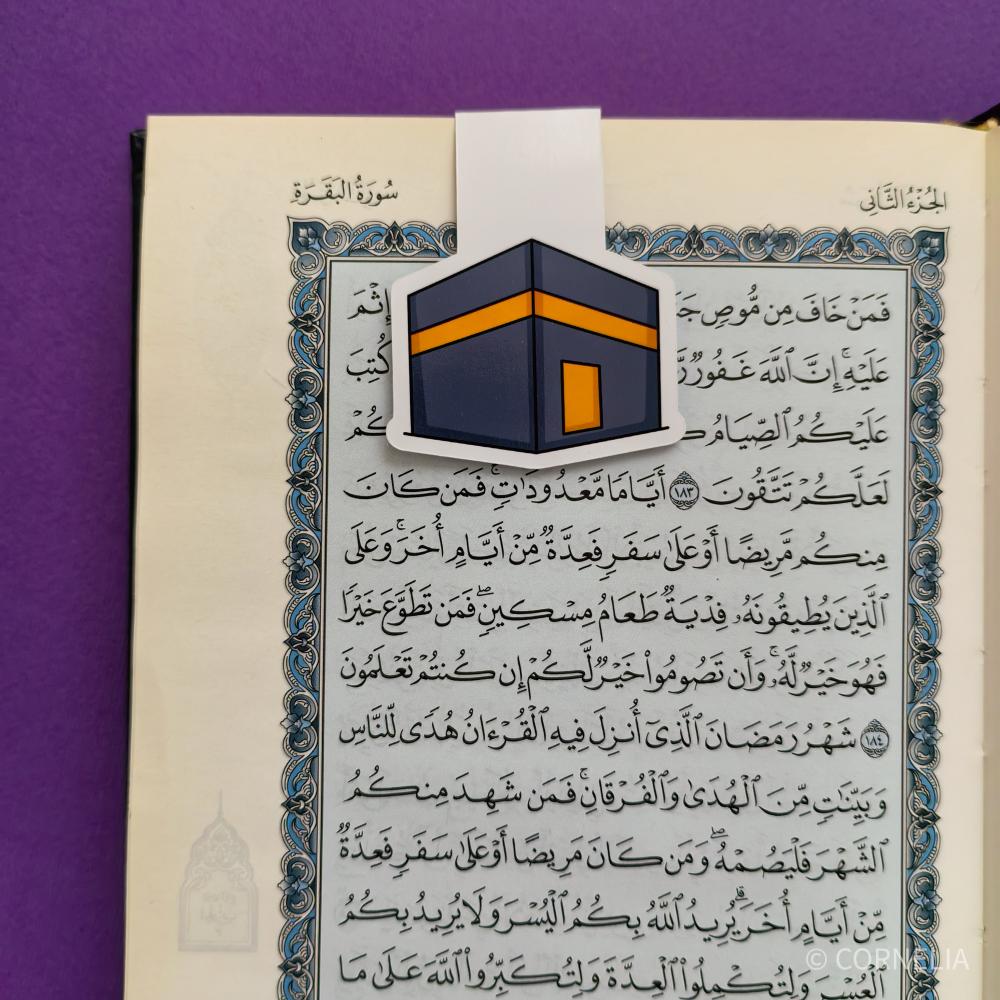 الجُزْءُ الثَّانِي
سُورَةُ البَقَرَةِ
فَمَنْ خَافَ مِن مُّوصٍ إِثْمً
عَلَيْهِۚ إِنَّ ٱللَّهَ غَفُورٌ كُتِبَ
عَلَيْكُمُ ٱلصِّيَامُ
لَعَلَّكُمْ تَتَّقُونَ ١٨٣ أَيَّامًا مَّعْدُودَٰتٍۚ فَمَن كَانَ
مِنكُم مَّرِيضًا أَوْ عَلَىٰ سَفَرٍ فَعِدَّةٌ مِّنْ أَيَّامٍ أُخَرَۚ وَعَلَى
ٱلَّذِينَ يُطِيقُونَهُۥ فِدْيَةٌ طَعَامُ مِسْكِينٍۖ فَمَن تَطَوَّعَ خَيْرًا
فَهُوَ خَيْرٌ لَّهُۥۚ وَأَن تَصُومُوا۟ خَيْرٌ لَّكُمْ إِن كُنتُمْ تَعْلَمُونَ
١٨٤ شَهْرُ رَمَضَانَ ٱلَّذِىٓ أُنزِلَ فِيهِ ٱلْقُرْءَانُ هُدًى لِّلنَّاسِ
وَبَيِّنَٰتٍ مِّنَ ٱلْهُدَىٰ وَٱلْفُرْقَانِۚ فَمَن شَهِدَ مِنكُمُ
ٱلشَّهْرَ فَلْيَصُمْهُۖ وَمَن كَانَ مَرِيضًا أَوْ عَلَىٰ سَفَرٍ فَعِدَّةٌ
مِّنْ أَيَّامٍ أُخَرَۗ يُرِيدُ ٱللَّهُ بِكُمُ ٱلْيُسْرَ وَلَا يُرِيدُ بِكُمُ
ٱلْعُسْرَ وَلِتُكْمِلُوا۟ ٱلْعِدَّةَ وَلِتُكَبِّرُوا۟ ٱللَّهَ عَلَىٰ مَا
© CORNELIA